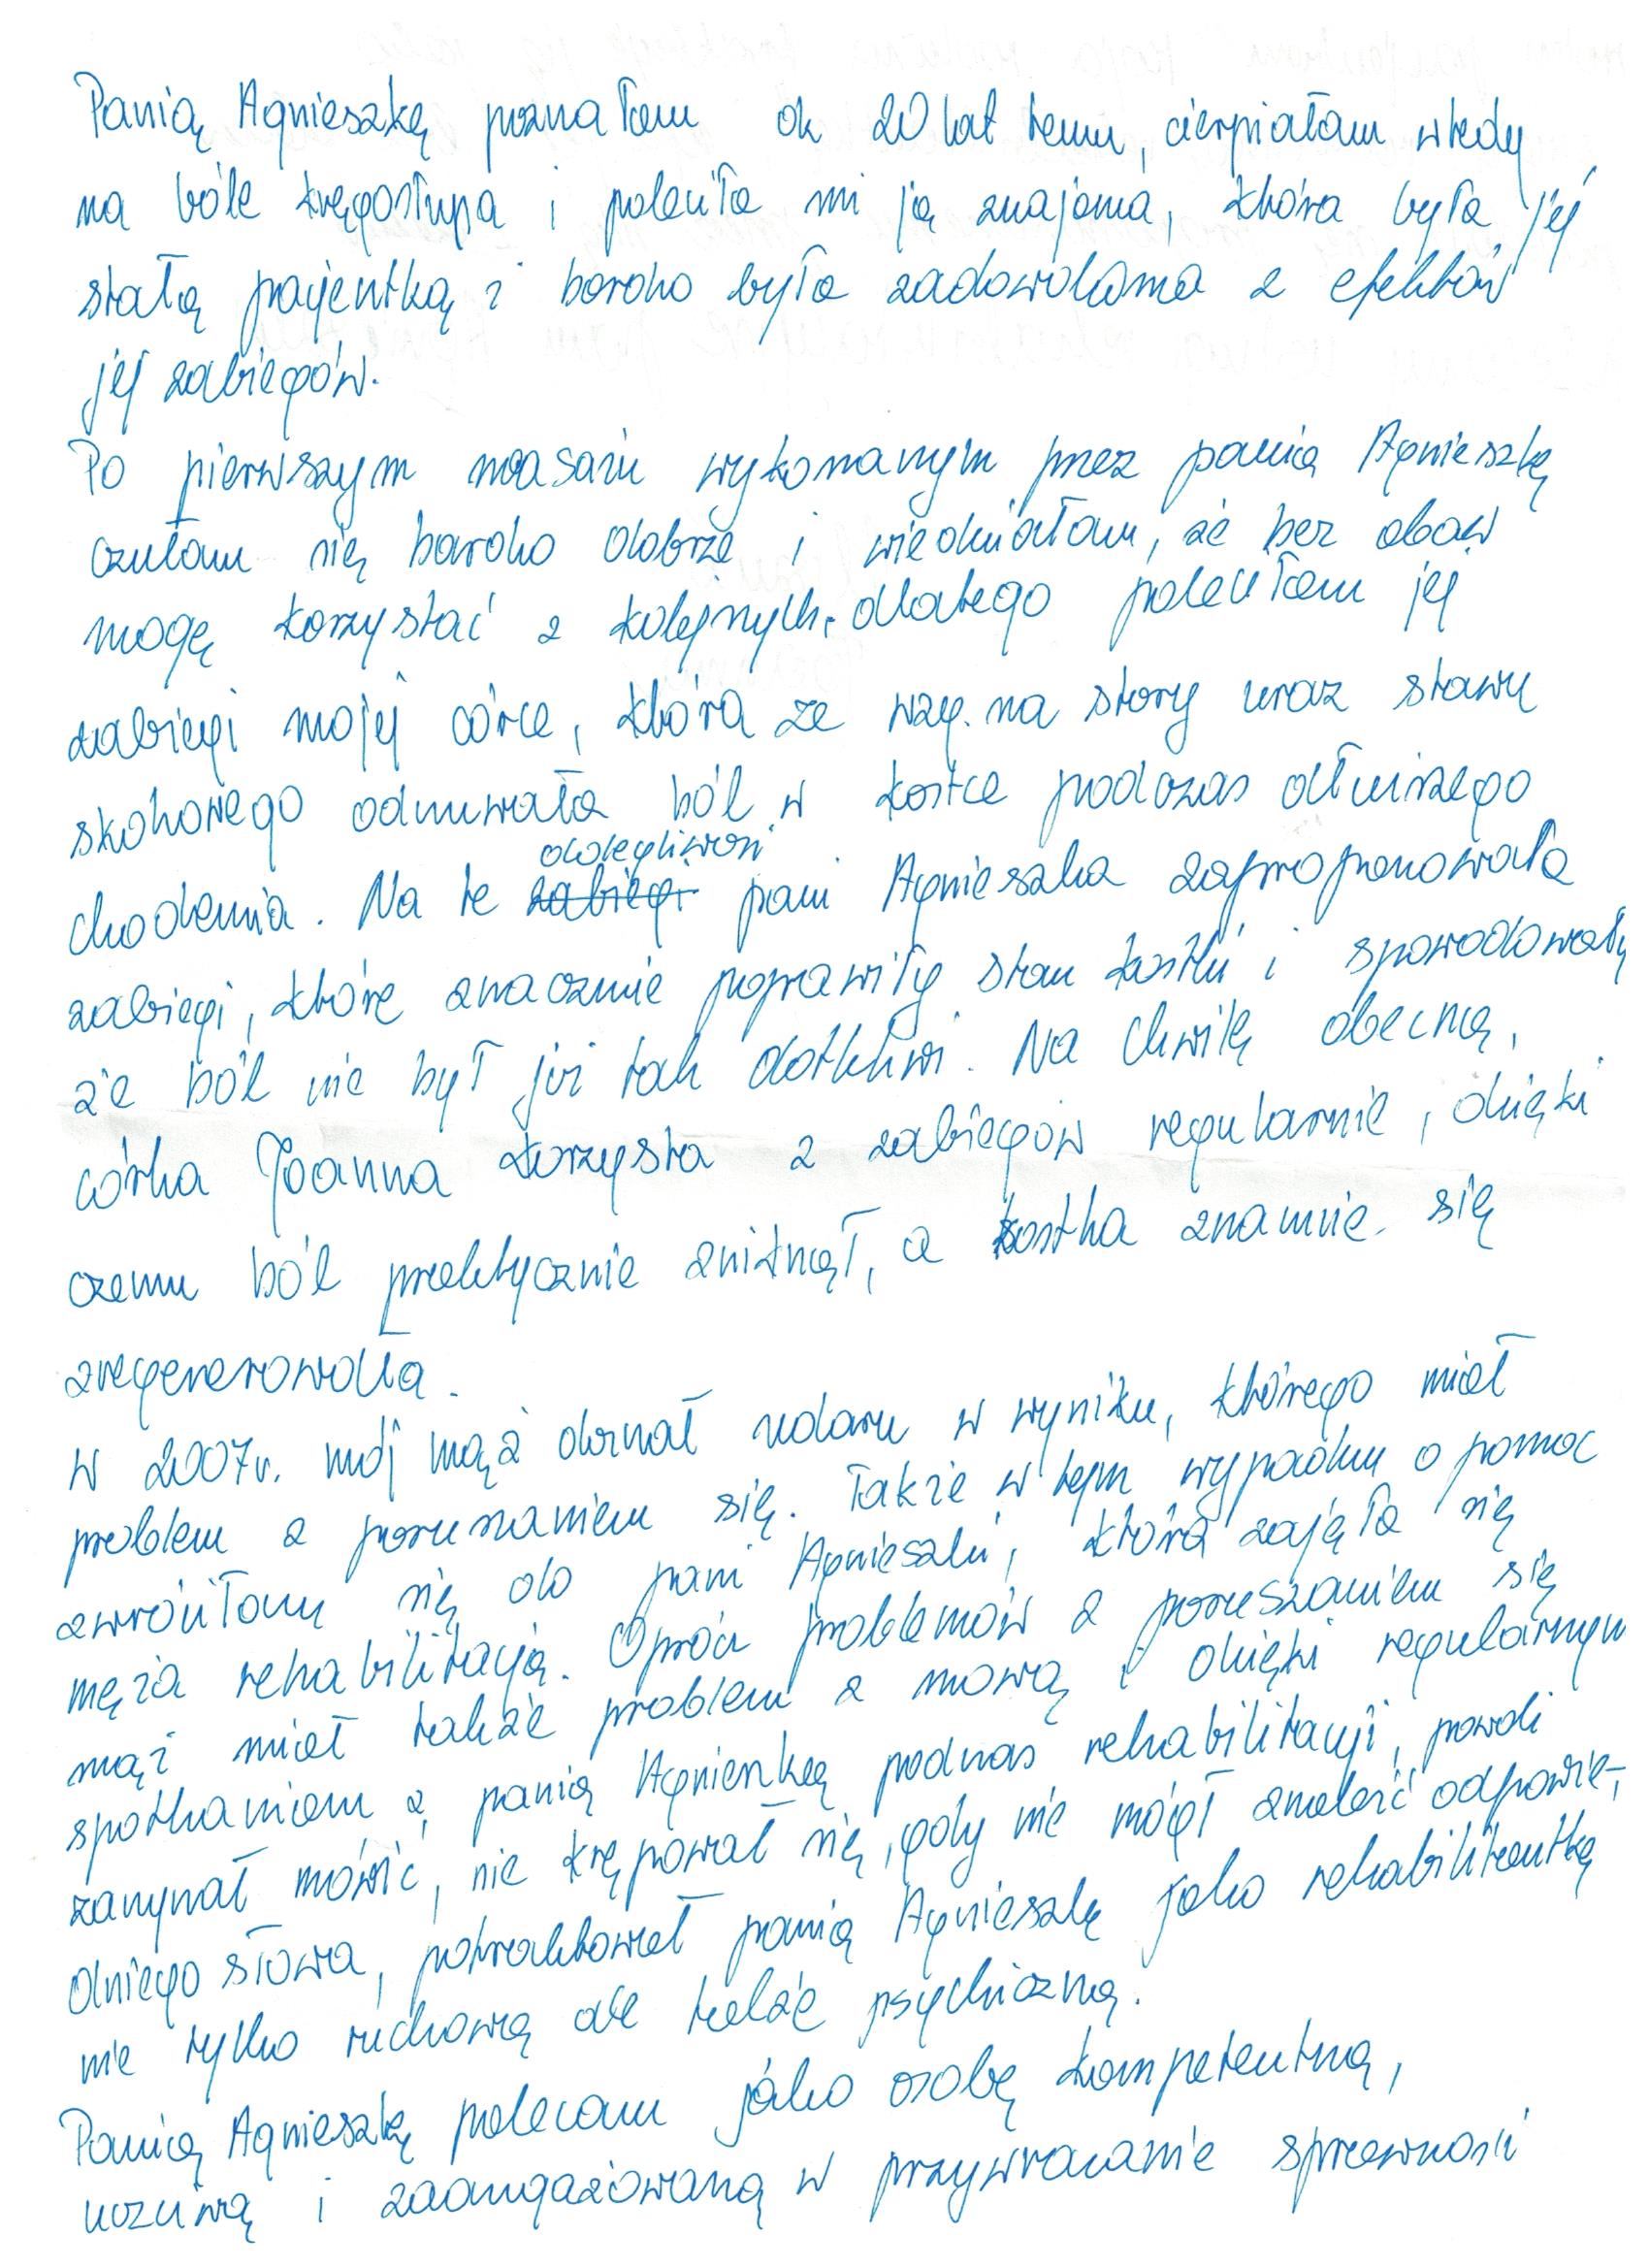 Panią Agnieszkę poznałam ok 20 lat temu, cierpiałam wtedy
na bóle kręgosłupa i poleciła mi ją znajoma, która była jej
stałą pacjentką i bardzo była zadowolona z efektów
jej zabiegów.
Po pierwszym masażu wykonanym przez panią Agnieszkę
czułam się bardzo dobrze i wiedziałam, że bez obaw
mogę korzystać z kolejnych, dlatego poleciłam jej
zabiegi mojej córce, która ze wzg. na stary uraz stawu
skokowego odczuwała ból w kostce podczas dłuższego
chodzenia. Na te zabiegi dolegliwości pani Agnieszka zaproponowała
zabiegi, które znacznie poprawiły stan kostki i spowodowały
że ból nie był już tak dotkliwi. Na chwilę obecną,
córka Joanna korzysta z zabiegów regularnie, dzięki
czemu ból praktycznie zniknął, a kostka znacznie się
zregenerowała.
W 2007r. mój mąż doznał udaru w wyniku, którego miał
problem z poruszaniem się. Także w tym wypadku o pomoc
zwróciłam się do pani Agnieszki, która zajęła się
męża rehabilitacją. Oprócz problemów z poruszaniem się
mąż miał także problem z mową i dzięki regularnym
spotkaniom z panią Agnieszką podczas rehabilitacji, powoli
zaczynał mówić, nie krępował się, gdy nie mógł znaleźć odpowie-
dniego słowa, potraktował panią Agnieszkę jako rehabilitantkę
nie tylko ruchową ale także psychiczną.
Panią Agnieszkę polecam jako osobę kompetentną,
uczciwą i zaangażowaną w przywracanie sprawności